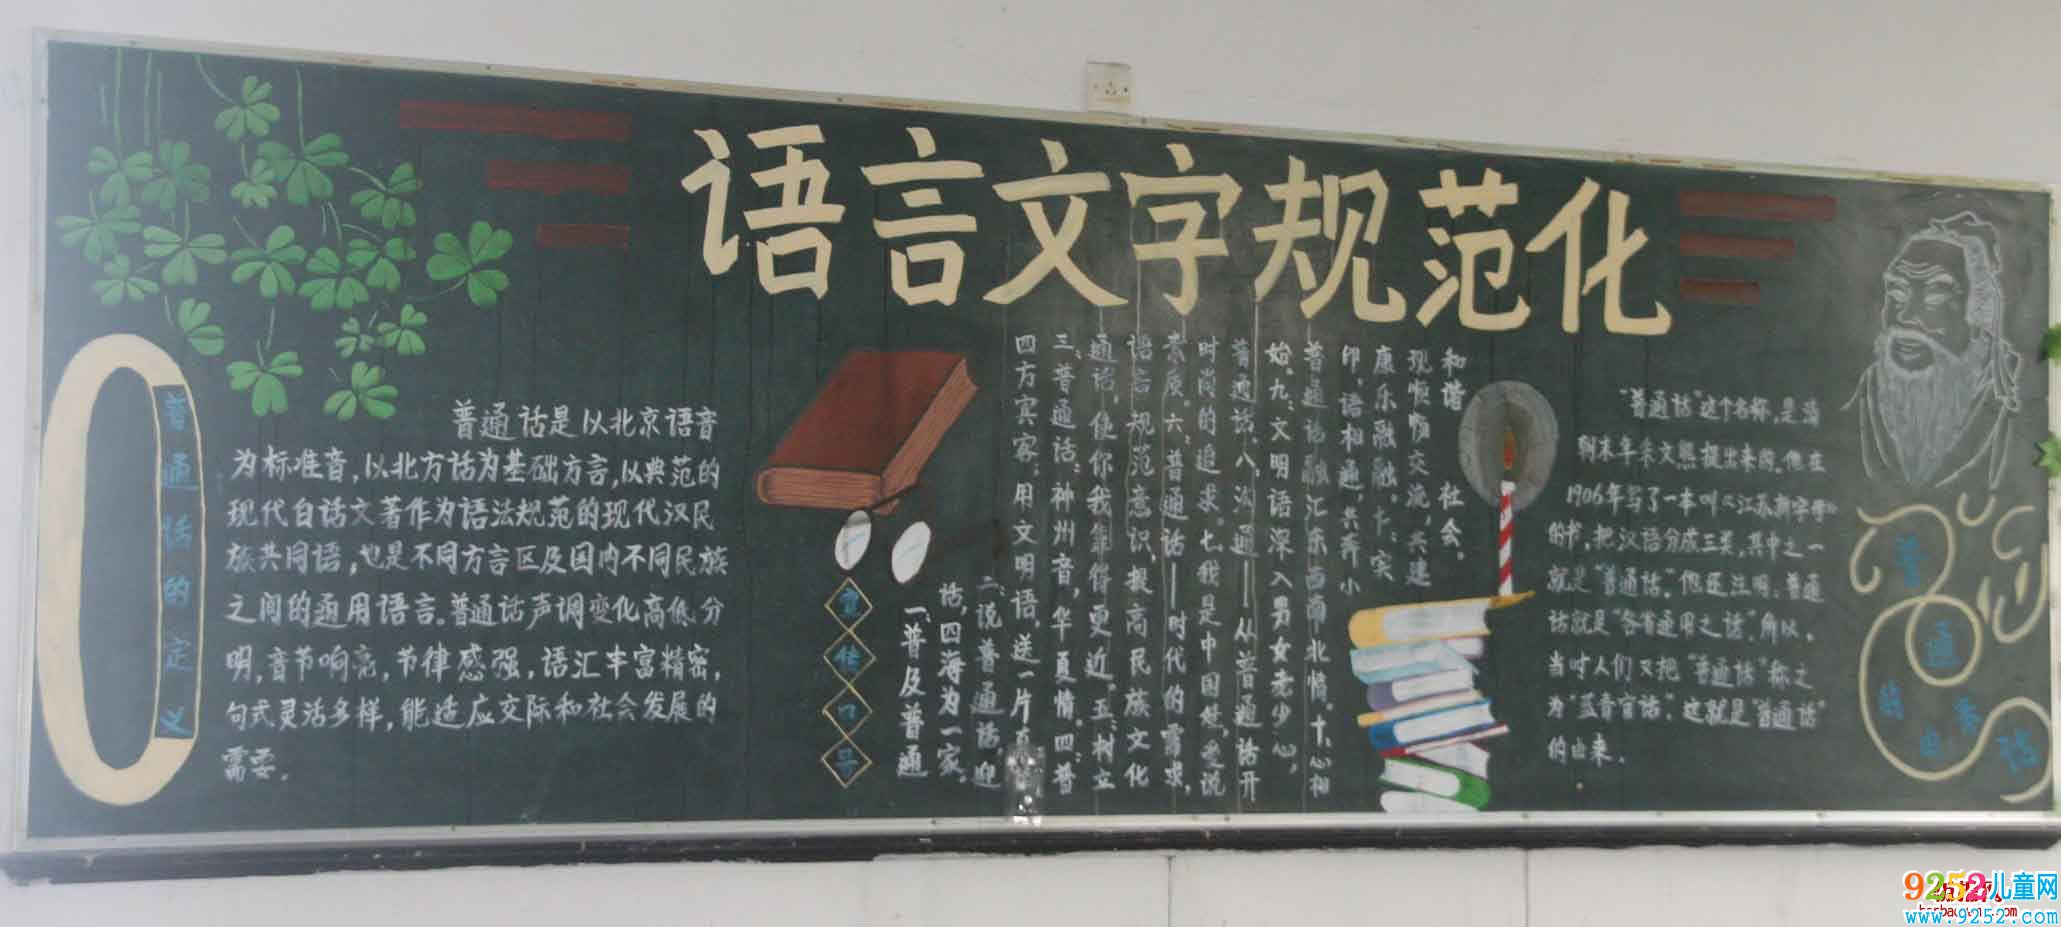 语言文字规范化
普通话的定义
普通话是以北京语音
为标准音,以北方话为基础方言,以典范的
现代白话文著作为语法规范的现代汉民
族共同语,也是不同方言区及国内不同民族
之间的通用语言。普通话声调变化高低分
明,音节响亮,节律感强,语汇丰富精密,
句式灵活多样,能适应交际和社会发展的
需要。
宣传口号
一、普及普通
话,四海为一家。
二、说普通话,迎
四方宾客;用文明语,送一片真
三、普通话:神州音,华夏情。四、普
通话,使你我靠得更近。五、树立
语言规范意识,提高民族文化
素质。六、普通话——时代的需求,
时尚的追求。七、我是中国娃,爱说
普通话。八、沟通——从普通话开
始。九、文明语深入男女老少心,
普通话融汇东西南北情。十、心相
印,语相通,共奔小
康乐融融。十、实
现顺畅交流,共建
和谐社会。
"普通话"这个名称,是清
朝末年朱文熊提出来的。他在
1906年写了一本叫《江苏新字母》
的书,把汉语分成三类,其中之一
就是"普通话"。他还注明:普通
话就是"各省通用之话"。所以,
当时人们又把"普通话"称之
为"蓝青官话"。这就是"普通话"
的由来。
普通话的由来
9252儿童网
www.9252.com